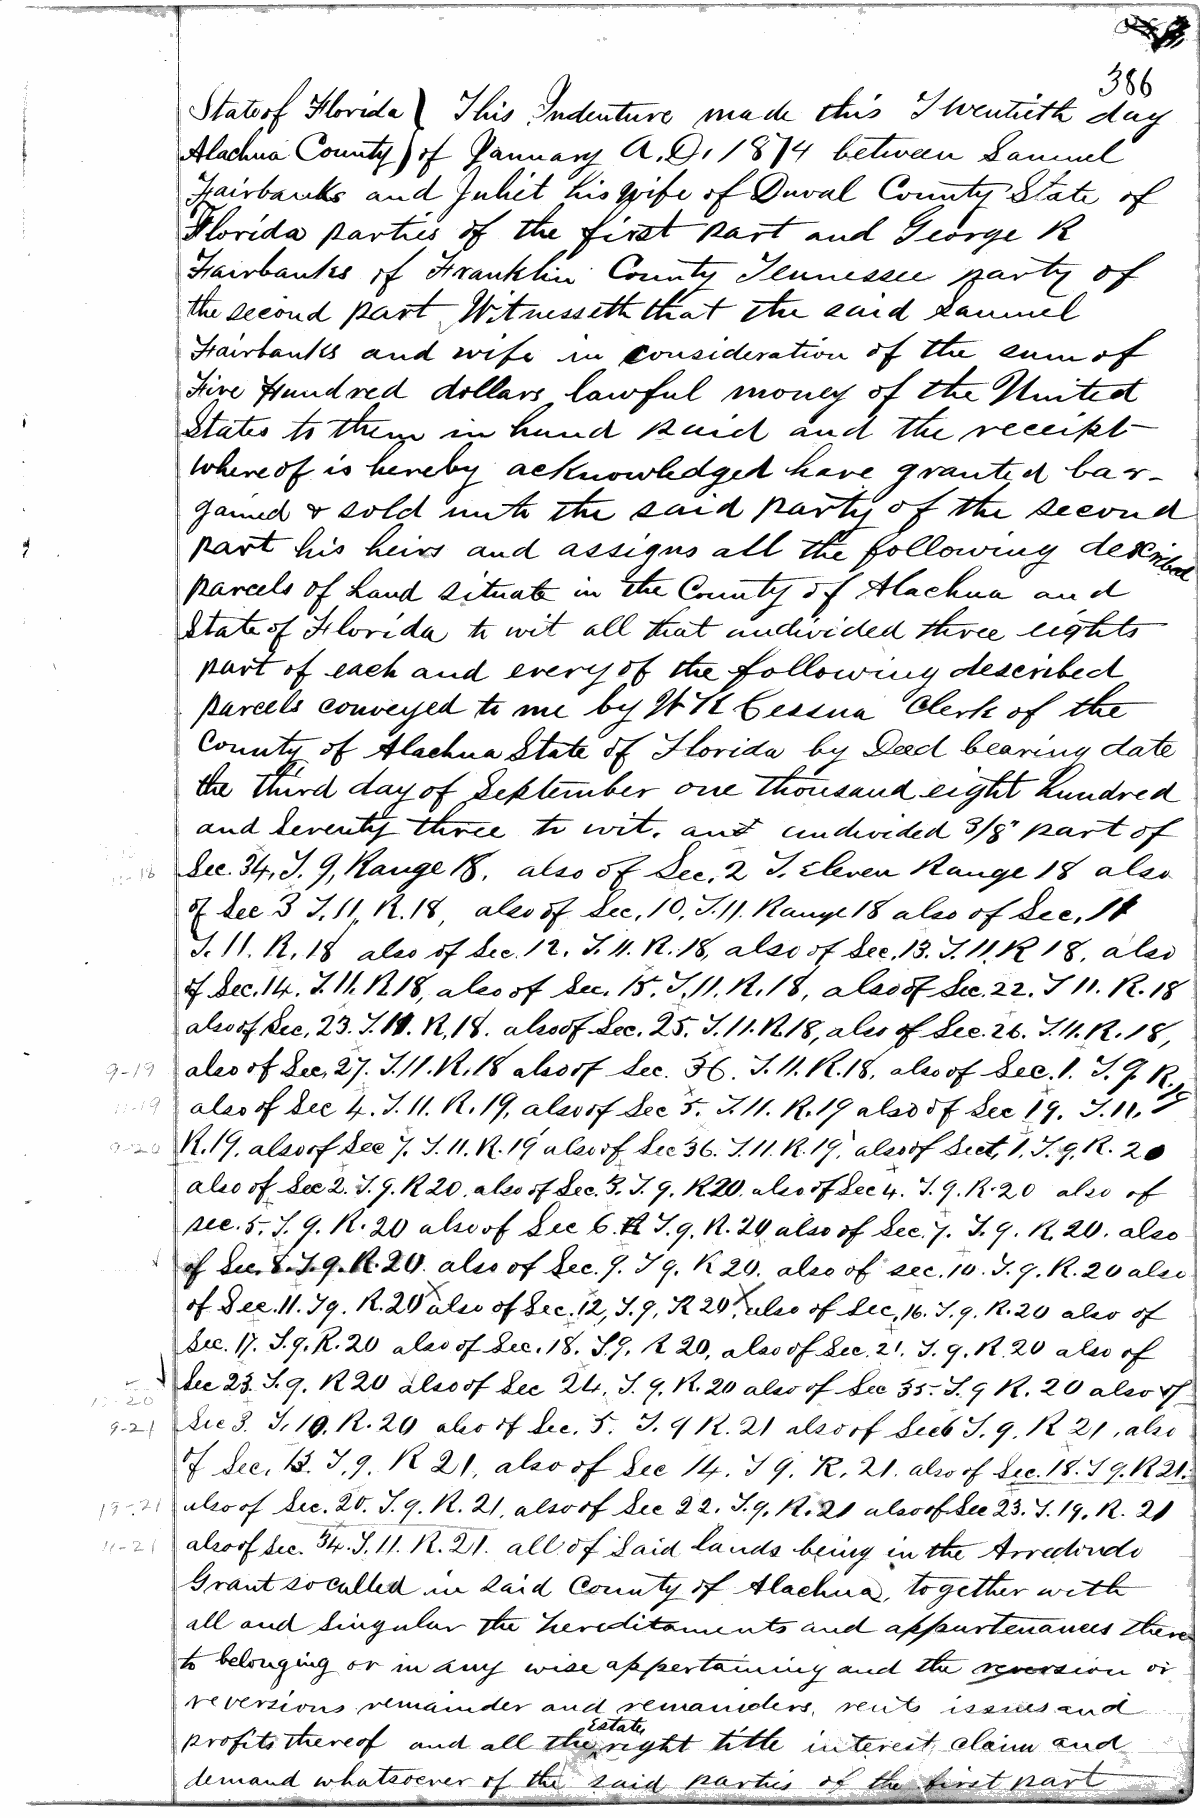 386
State of Florida } This Indenture made this Twentieth day
Alachua County } of January A.D. 1874 between Samuel
Fairbanks and Juliet his wife of Duval County State of
Florida parties of the first part and George R
Fairbanks of Franklin County Tennessee party of
the second part Witnesseth that the said Samuel
Fairbanks and wife in consideration of the sum of
Five Hundred dollars lawful money of the United
States to them in hand paid and the receipt
whereof is hereby acknowledged have granted bar-
gained & sold unto the said party of the second
part his heirs and assigns all the following described
parcels of land situate in the County of Alachua and
State of Florida to wit all that undivided three eights
part of each and every of the following described
parcels conveyed to me by W K Cessna Clerk of the
County of Alachua State of Florida by Deed bearing date
the third day of September one thousand eight hundred
and Seventy three to wit. an undivided 3/8" part of
Sec. 34, T. 9, Range 18. also of Sec. 2 T. Eleven Range 18 also
of Sec 3 T. 11, R. 18, also of Sec. 10, T. 11. Range 18 also of Sec. 11
T. 11. R. 18 also of Sec. 12. T. 11. R. 18, also of Sec. 13. T. 11. R 18. also
of Sec. 14. T. 11. R 18, also of Sec. 15. T. 11. R. 18, also of Sec. 22. T 11. R. 18
also of Sec. 23. T. 11. R. 18. also of Sec. 25. T. 11. R 18, also of Sec. 26. T. 11. R. 18,
9-19 also of Sec. 27. T. 11. R. 18 also of Sec. 36. T. 11. R. 18. also of Sec. 1. T. 9. R. 19
11-19 also of Sec 4. T. 11. R. 19, also of Sec 5. T. 11. R. 19 also of Sec 19. T. 11.
9-20 R. 19, also of Sec 7. T. 11. R. 19 also of Sec 36. T. 11. R. 19, also of Sect. 1. T. 9. R. 20
also of Sec 2. T. 9. R 20. also of Sec. 3. T. 9. R 20. also of Sec 4. T. 9. R. 20 also of
sec. 5. T. 9. R. 20 also of Sec 6. T. 9. R. 20 also of Sec. 7. T. 9. R. 20. also
of Sec. 8. T. 9. R. 20. also of Sec. 9. T 9. R 20. also of sec. 10. T. 9. R. 20 also
of Sec. 11. T 9. R. 20 also of Sec. 12, T. 9, R 20, also of Sec. 16. T. 9. R. 20 also of
Sec. 17. T. 9. R. 20 also of Sec. 18. T. 9. R 20, also of Sec. 21. T. 9. R. 20 also of
Sec 23. T. 9. R 20 also of Sec 24. T. 9. R. 20 also of Sec 35. T. 9 R. 20 also of
9-21 Sec 3. T. 10. R. 20 also of Sec. 5. T. 9 R. 21 also of Sec 6 T. 9. R 21, also
of Sec. 13. T. 9. R 21, also of Sec 14. T 9. R. 21. also of Sec. 18. T 9. R 21.
19-21 also of Sec. 20. T. 9. R. 21, also of Sec 22. T. 9. R. 21 also of Sec 23. T. 19. R. 21
11-21 also of Sec. 34. T. 11. R. 21. all of Said lands being in the Arredondo
Grant so called in said County of Alachua, together with
all and singular the hereditaments and appurtenances there
to belonging or in any wise appertaining and the reversion or
reversions remainder and remainders, rents issues and
profits thereof and all the Estate, right title interest claim and
demand whatsoever of the said parties of the first part